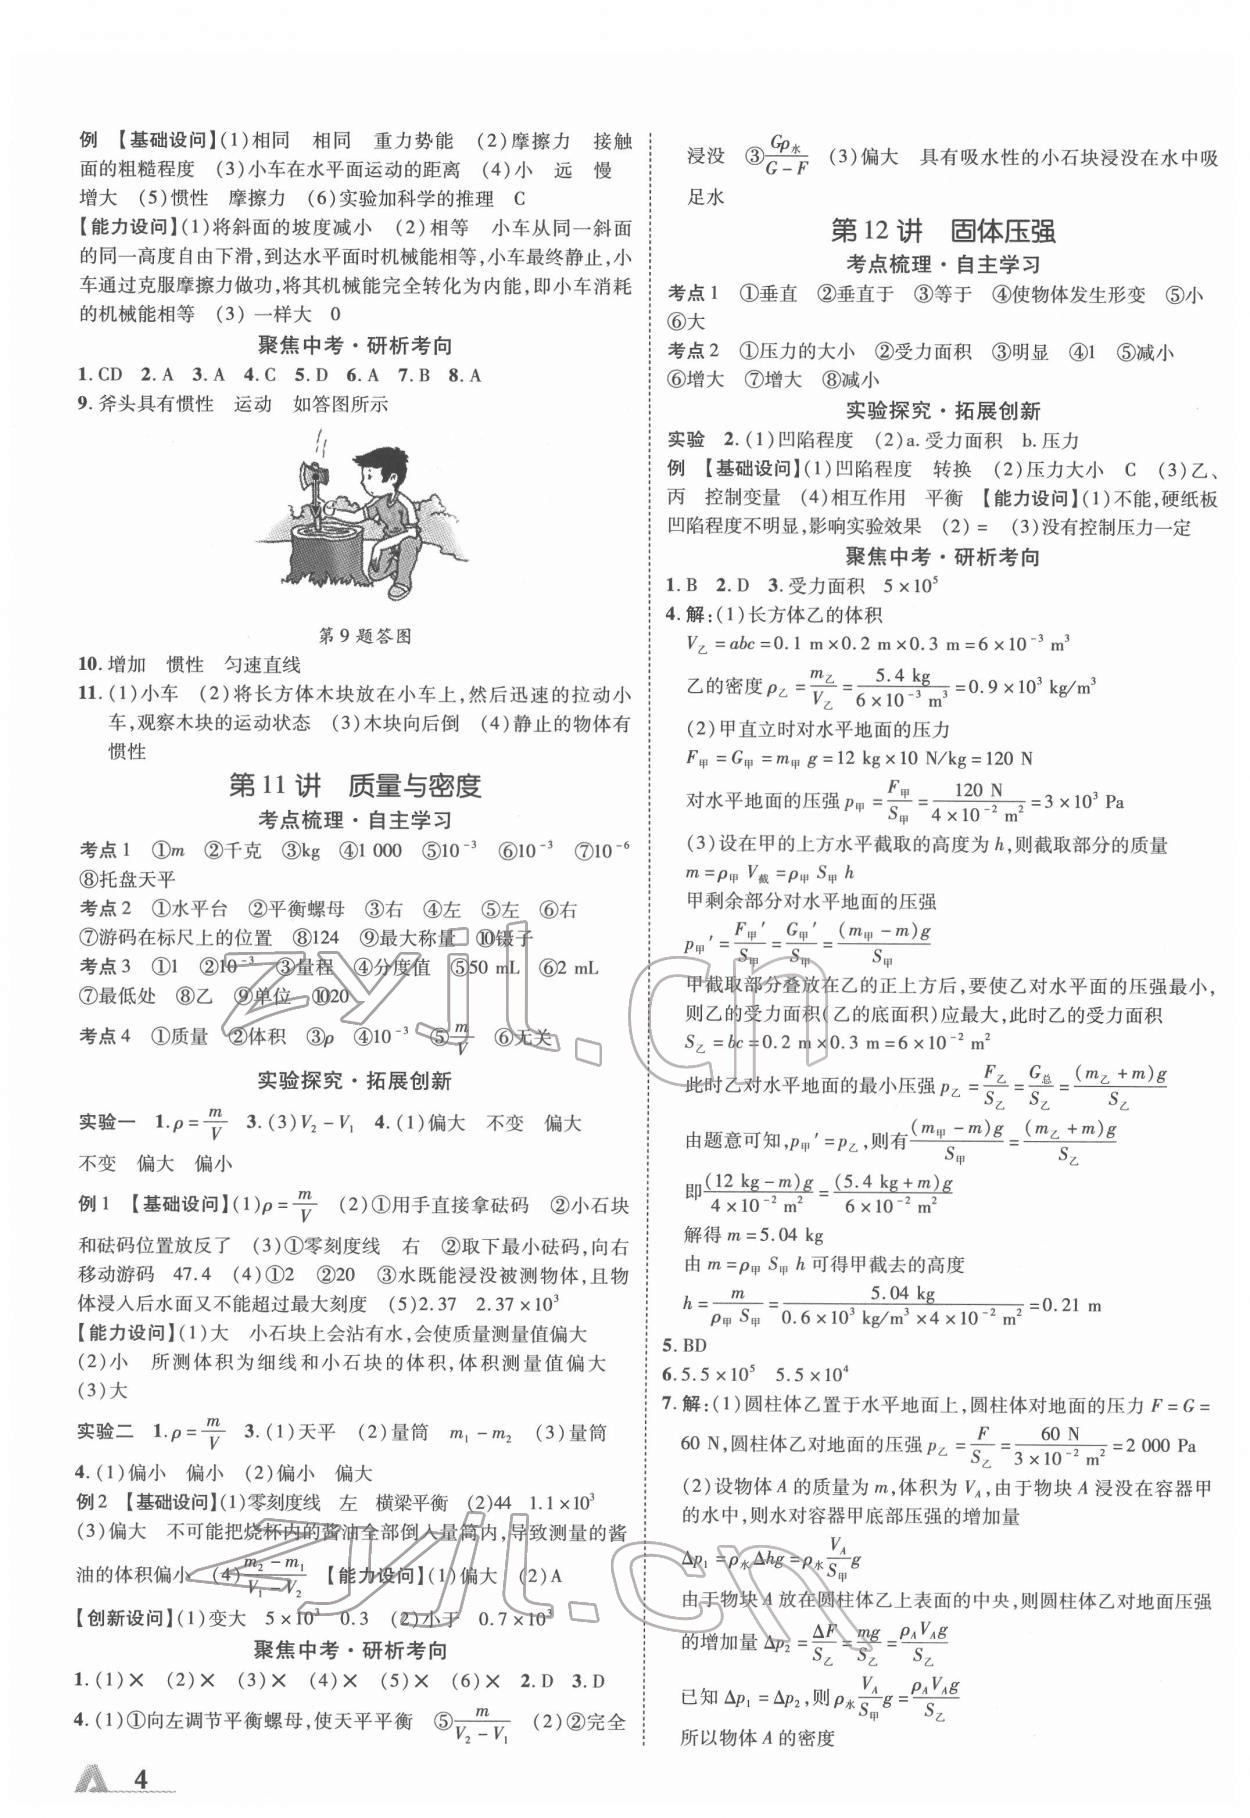 例 【基础设问】(1)相同 相同 重力势能 (2)摩擦力 接触
面的粗糙程度 (3)小车在水平面运动的距离 (4)小 远 慢
增大 (5)惯性 摩擦力 (6)实验加科学的推理 C
【能力设问】(1)将斜面的坡度减小 (2)相等 小车从同一斜面
的同一高度自由下滑,到达水平面时机械能相等,小车最终静止,小
车通过克服摩擦力做功,将其机械能完全转化为内能,即小车消耗
的机械能相等 (3)一样大 0
聚焦中考·研析考向
1. CD 2. A 3. A 4. C 5. D 6. A 7. B 8. A
9. 斧头具有惯性 运动 如答图所示
第9题答图
10. 增加 惯性 匀速直线
11. (1)小车 (2)将长方体木块放在小车上,然后迅速的拉动小
车,观察木块的运动状态 (3)木块向后倒 (4)静止的物体有
惯性
第11讲 质量与密度
考点梳理·自主学习
考点1 ①m ②千克 ③kg ④1 000 ⑤10⁻³ ⑥10⁻³ ⑦10⁻⁶
⑧托盘天平
考点2 ①水平台 ②平衡螺母 ③右 ④左 ⑤左 ⑥右
⑦游码在标尺上的位置 ⑧124 ⑨最大称量 ⑩镊子
考点3 ①1 ②10⁻³ ③量程 ④分度值 ⑤50 mL ⑥2 mL
⑦最低处 ⑧乙 ⑨单位 ⑩20
考点4 ①质量 ②体积 ③ρ ④10⁻³ ⑤m/V ⑥无关
实验探究·拓展创新
实验一 1. ρ=m/V 3. (3)V₂-V₁ 4. (1)偏大 不变 偏大
不变 偏大 偏小
例1 【基础设问】(1)ρ=m/V (2)①用手直接拿砝码 ②小石块
和砝码位置放反了 (3)①零刻度线 右 ②取下最小砝码,向右
移动游码 47.4 (4)①2 ②20 ③水既能浸没被测物体,且物
体浸入后水面又不能超过最大刻度 (5)2.37 2.37×10³
【能力设问】(1)大 小石块上会沾有水,会使质量测量值偏大
(2)小 所测体积为细线和小石块的体积,体积测量值偏大
(3)大
实验二 1. ρ=m/V 3. (1)天平 (2)量筒 m₁-m₂ (3)量筒
4. (1)偏小 偏小 (2)偏小 偏大
例2 【基础设问】(1)零刻度线 左 横梁平衡 (2)44 1.1×10³
(3)偏大 不可能把烧杯内的酱油全部倒入量筒内,导致测量的酱
油的体积偏小 (4)(m₂-m₁)/(V₁-V₂) 【能力设问】(1)偏大 (2)A
【创新设问】(1)变大 5×10³ 0.3 (2)小于 0.7×10³
聚焦中考·研析考向
1. (1)× (2)× (3)× (4)× (5)× (6)× 2. D 3. D
4. (1)①向左调节平衡螺母,使天平平衡 ⑤m/(V₂-V₁) (2)②完全
4
浸没 ③Gρ水/(G-F) (3)偏大 具有吸水性的小石块浸没在水中吸
足水
第12讲 固体压强
考点梳理·自主学习
考点1 ①垂直 ②垂直于 ③等于 ④使物体发生形变 ⑤小
⑥大
考点2 ①压力的大小 ②受力面积 ③明显 ④1 ⑤减小
⑥增大 ⑦增大 ⑧减小
实验探究·拓展创新
实验 2. (1)凹陷程度 (2)a. 受力面积 b. 压力
例 【基础设问】(1)凹陷程度 转换 (2)压力大小 C (3)乙、
丙 控制变量 (4)相互作用 平衡 【能力设问】(1)不能,硬纸板
凹陷程度不明显,影响实验效果 (2)= (3)没有控制压力一定
聚焦中考·研析考向
1. B 2. D 3. 受力面积 5×10⁵
4. 解:(1)长方体乙的体积
V乙=abc=0.1 m×0.2 m×0.3 m=6×10⁻³ m³
乙的密度ρ乙=m乙/V乙=5.4 kg/(6×10⁻³ m³)=0.9×10³ kg/m³
(2)甲直立时对水平地面的压力
F甲=G甲=m甲g=12 kg×10 N/kg=120 N
对水平地面的压强p甲=F甲/S甲=120 N/(4×10⁻² m²)=3×10³ Pa
(3)设在甲的上方水平截取的高度为h,则截取部分的质量
m=ρ甲V截=ρ甲S甲h
甲剩余部分对水平地面的压强
p甲′=F甲′/S甲=G甲′/S甲=(m甲-m)g/S甲
甲截取部分叠放在乙的正上方后,要使乙对水平面的压强最小,
则乙的受力面积(乙的底面积)应最大,此时乙的受力面积
S乙=bc=0.2 m×0.3 m=6×10⁻² m²
此时乙对水平地面的最小压强p乙=F乙/S乙=G总/S乙=(m乙+m)g/S乙
由题意可知,p甲′=p乙,则有(m甲-m)g/S甲=(m乙+m)g/S乙
即(12 kg-m)g/(4×10⁻² m²)=(5.4 kg+m)g/(6×10⁻² m²)
解得m=5.04 kg
由m=ρ甲S甲h可得甲截去的高度
h=m/(ρ甲S甲)=5.04 kg/(0.6×10³ kg/m³×4×10⁻² m²)=0.21 m
5. BD
6. 5.5×10⁵ 5.5×10⁴
7. 解:(1)圆柱体乙置于水平地面上,圆柱体对地面的压力F=G=
60 N,圆柱体乙对地面的压强p乙=F/S乙=60 N/(3×10⁻² m²)=2 000 Pa
(2)设物体A的质量为m,体积为V_A,由于物块A浸没在容器甲
的水中,则水对容器甲底部压强的增加量
Δp₁=ρ水Δhg=ρ水(V_A/S甲)g
由于物块A放在圆柱体乙上表面的中央,则圆柱体乙对地面压强
的增加量Δp₂=ΔF/S乙=mg/S乙=ρ_AV_Ag/S乙
已知Δp₁=Δp₂,则ρ水(V_A/S甲)g=ρ_AV_Ag/S乙
所以物体A的密度
zyjl.cn
zyjl.cn